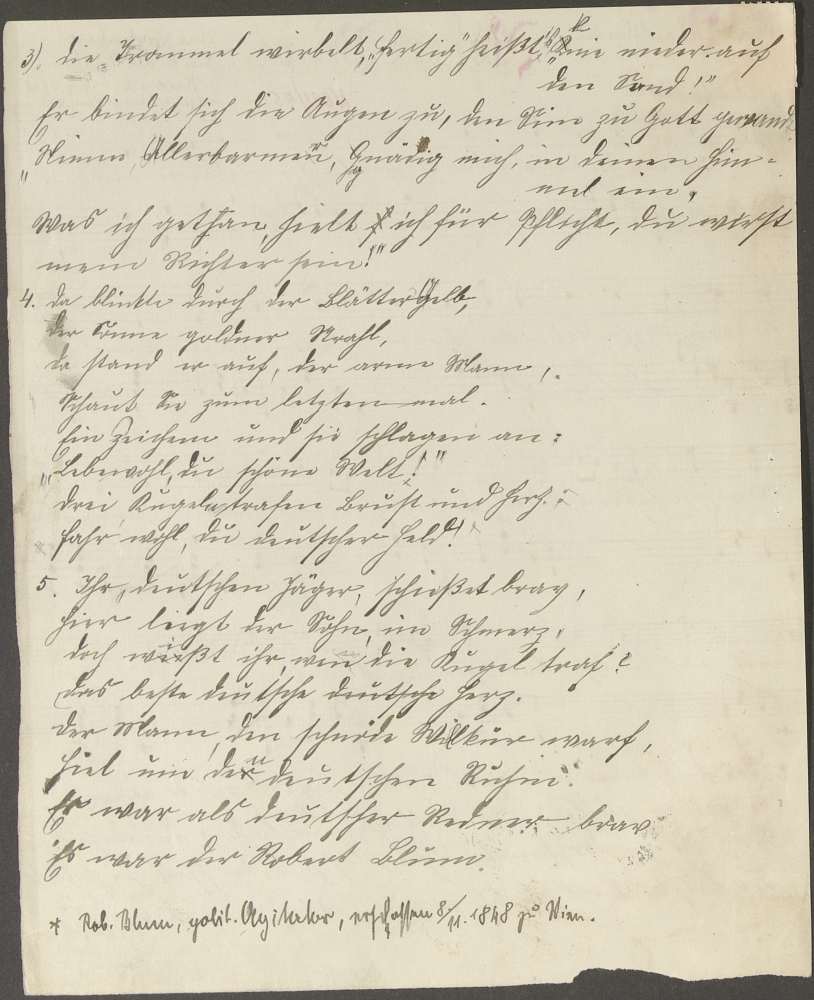 3). die Trommel wirbelt, „fertig" heißt's, „Knie nieder auf
den Sand!"
Er bindet sich die Augen zu, den Sinn zu Gott gewandt.
„Nimm, Allerbarmer, gnädig mich, in deinen Him-
mel ein,
Was ich gethan, hielt ich für Pflicht, du wirst
mein Richter sein!"
4. Da blinkte durch der Blätter Gelb,
Der Sonne goldner Strahl,
Da stand er auf, der arme Mann,
Schaut Sie zum letzten mal.
Ein Zeichen und sie schlagen an:
„Lebewohl, du schöne Welt!"
Drei Kugeln trafen Brust und Herz.
Fahr wohl, du deutscher Held!
5. Ihr, deutschen Jäger, schießet brav,
Hier liegt der Sohn, im Schmerz,
Doch wißt ihr, wen die Kugel traf?
Das beste deutsche deutsche Herz.
Der Mann, den schnöde Willkür warf,
Fiel um den deutschen Ruhm.
Er war als deutscher Redner brav
Es war der Robert Blum.
* Rob. Blum, polit. Agitator, erschossen 8/11. 1848 zu Wien.